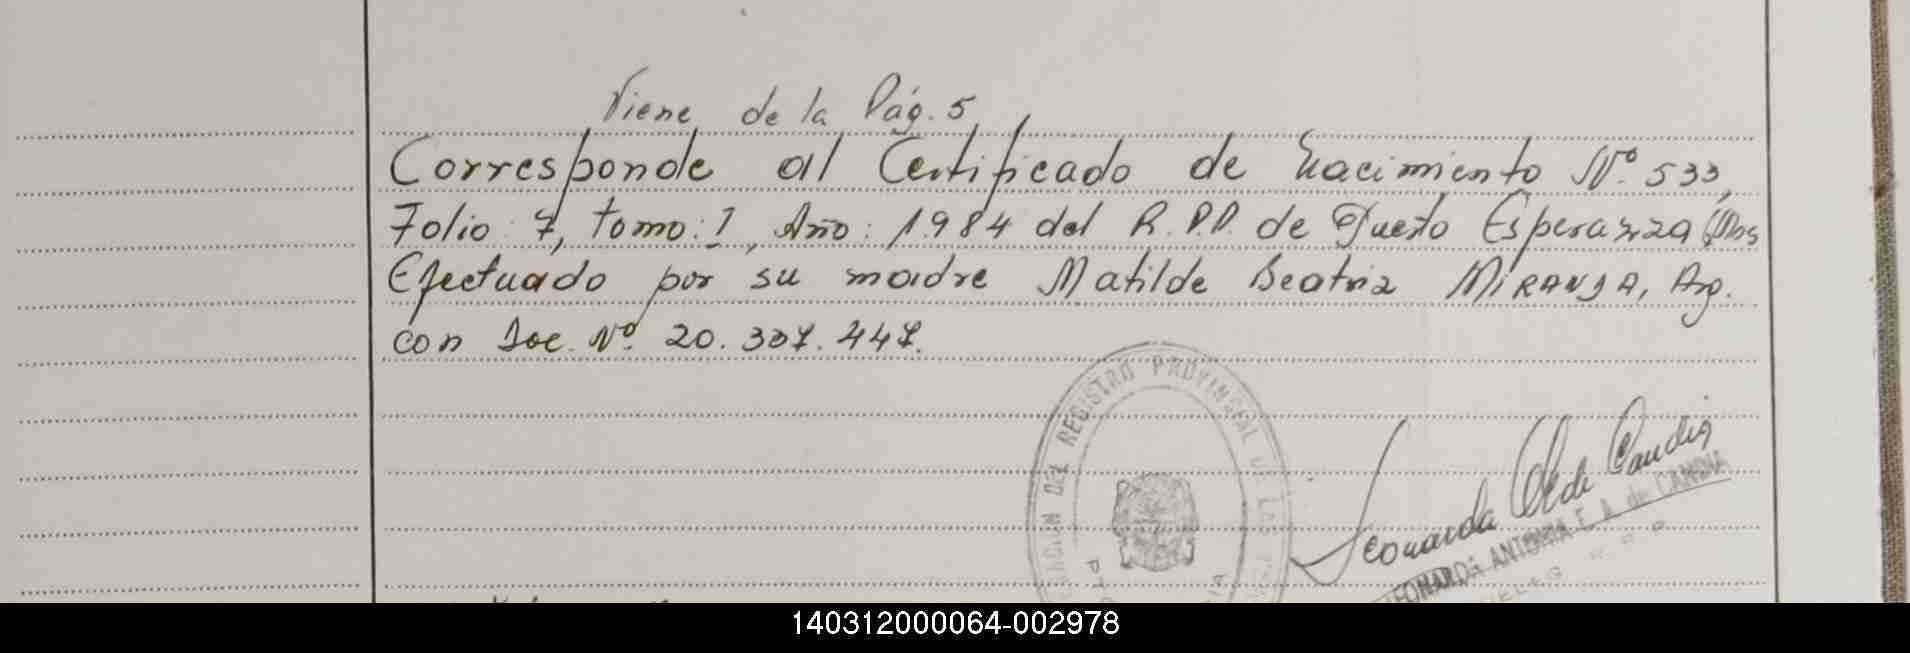 Viene de la Pág. 5
Corresponde al Certificado de Nacimiento Nº 533,
Folio: 7, tomo: I, Año: 1984 del R.P.P. de Puerto Esperanza
Efectuado por su madre Matilde Beatriz MIRANDA, Arg.
con Doc. Nº 20.337.447.
DEL REGISTRO PROVINCIAL DE LAS
Leonarda de Candia
LEONARDA ANTONIA E. A. de CANDIA
140312000064-002978